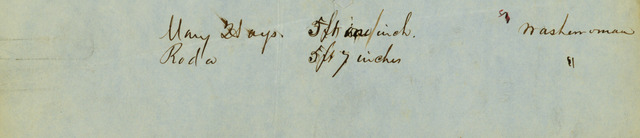 Mary Hays. 5ft 1 inch. " Washerwoman
Roda 5ft 7 inches "